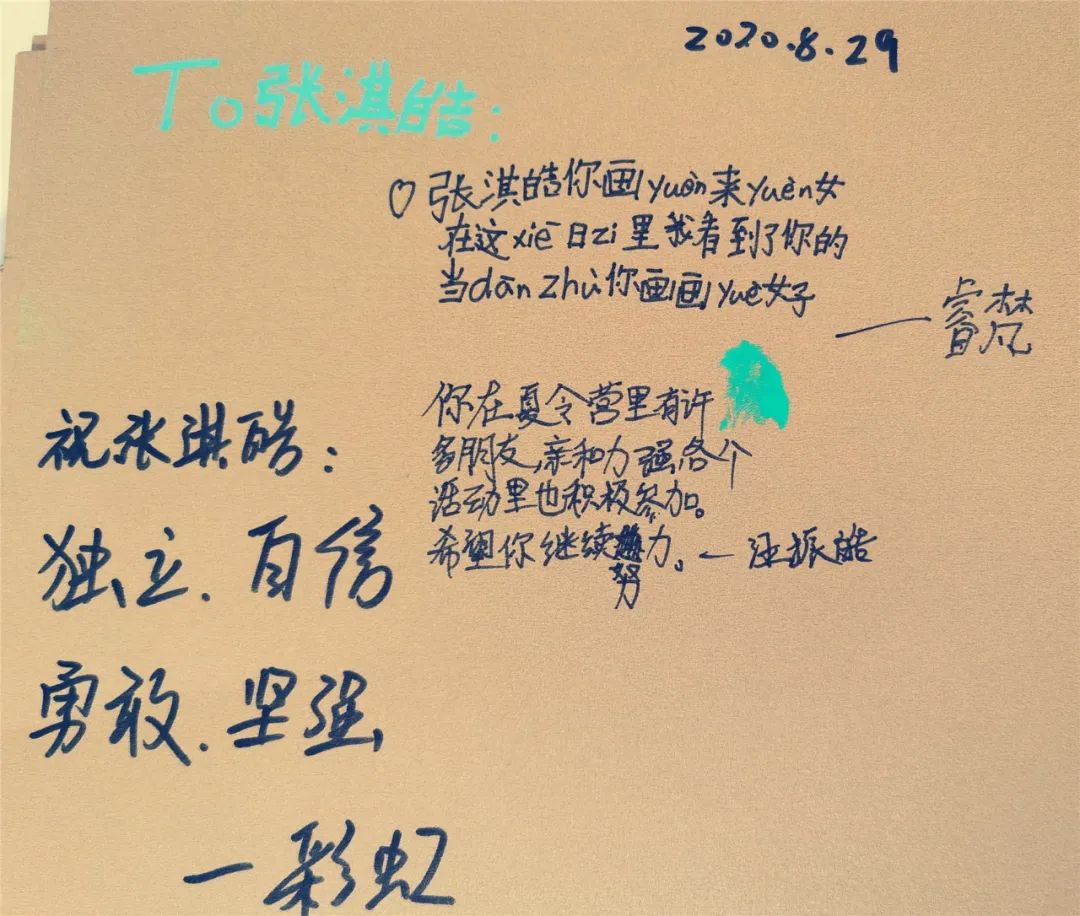 2020.8.29
To张淇皓:
♡张淇皓你画yuàn来yuèn女
在这xiē日zi里我看到了你的
当dān zhù你画画yuè女子
——睿梵
你在夏令营里有许
多朋友,亲和力强各个
活动里也积极参加。
希望你继续努力。—汪振皓
祝张淇皓:
独立、自信
勇敢、坚强
—彩虹